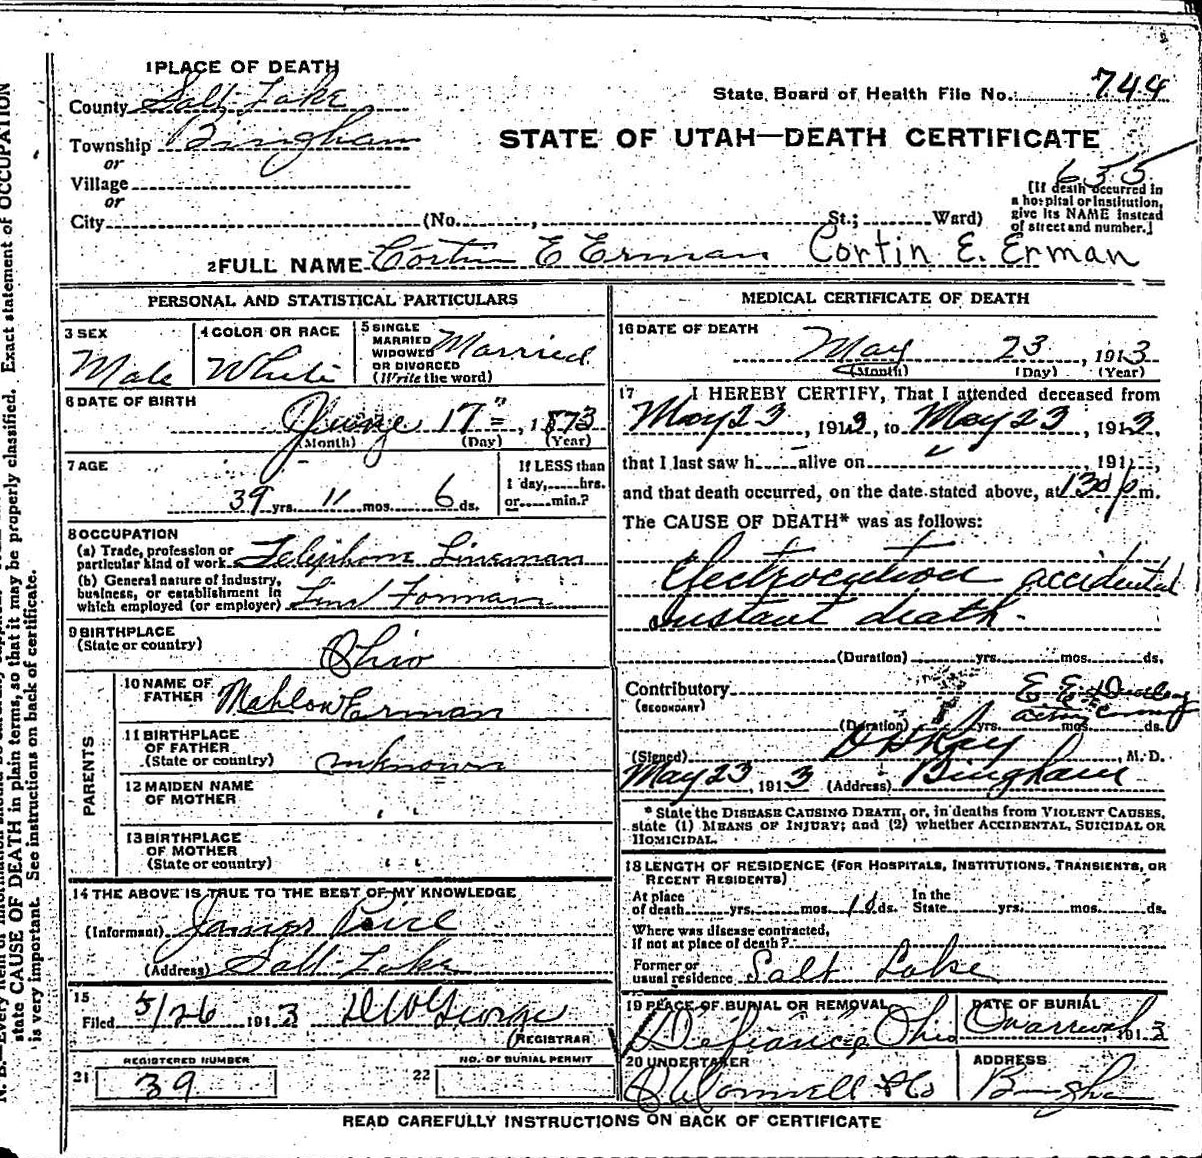 1 PLACE OF DEATH
County Salt Lake
State Board of Health File No. 744
Township Bingham
STATE OF UTAH—DEATH CERTIFICATE
or
Village
655
or
City (No. , St.; Ward)
[If death occurred in
a hospital or institution,
give its NAME instead
of street and number.]
2 FULL NAME Cortin E Erman Cortin E. Erman
PERSONAL AND STATISTICAL PARTICULARS
3 SEX
Male
4 COLOR OR RACE
White
5 SINGLE
MARRIED
WIDOWED
OR DIVORCED
(Write the word)
Married
6 DATE OF BIRTH
June 17, 1873
(Month) (Day) (Year)
7 AGE
39 yrs. 11 mos. 6 ds.
If LESS than
1 day, hrs.
or min.?
8 OCCUPATION
(a) Trade, profession or
particular kind of work Telephone Lineman
(b) General nature of industry,
business, or establishment in
which employed (or employer) Forman
9 BIRTHPLACE
(State or country)
Ohio
PARENTS
10 NAME OF
FATHER Mahlon Erman
11 BIRTHPLACE
OF FATHER
(State or country) unknown
12 MAIDEN NAME
OF MOTHER " "
13 BIRTHPLACE
OF MOTHER
(State or country) " "
14 THE ABOVE IS TRUE TO THE BEST OF MY KNOWLEDGE
(Informant) James Price
(Address) Salt Lake
15
Filed 5/26 1913 George
(REGISTRAR
REGISTERED NUMBER
21 39
NO. OF BURIAL PERMIT
22
MEDICAL CERTIFICATE OF DEATH
16 DATE OF DEATH
May 23, 1913
(Month) (Day) (Year)
17 I HEREBY CERTIFY, That I attended deceased from
May 23, 1913, to May 23, 1913,
that I last saw h alive on , 191 ,
and that death occurred, on the date stated above, at 130 p m.
The CAUSE OF DEATH* was as follows:
Electrocution accidental
Instant death.
(Duration) yrs. mos. ds.
Contributory E. E.
(SECONDARY)
(Duration) yrs. mos. ds.
(Signed) Ray, M. D.
May 23 1913 (Address) Bingham
* State the DISEASE CAUSING DEATH, or, in deaths from VIOLENT CAUSES,
state (1) MEANS OF INJURY; and (2) whether ACCIDENTAL, SUICIDAL OR
HOMICIDAL.
18 LENGTH OF RESIDENCE (FOR HOSPITALS, INSTITUTIONS, TRANSIENTS, OR
RECENT RESIDENTS)
At place
of death yrs. mos. ds. In the
State yrs. mos. ds.
Where was disease contracted,
if not at place of death?
Former or
usual residence Salt Lake
19 PLACE OF BURIAL OR REMOVAL
Defiance, Ohio
DATE OF BURIAL
1913
20 UNDERTAKER
& Co
ADDRESS
Bingham
READ CAREFULLY INSTRUCTIONS ON BACK OF CERTIFICATE
state CAUSE OF DEATH in plain terms, so that it may be properly classified. Exact statement of OCCUPATION
is very important. See instructions on back of certificate.